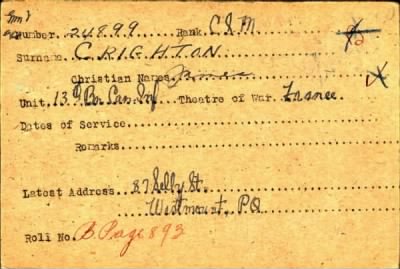 Number 24899 Rank C S M
Surname CRIGHTON
Christian Names James
Unit 13th Bn Can Inf Theatre of War France
Dates of Service
Remarks
Latest Address 87 Selby St.
Westmount, P.Q
Roll No. B. Page 893